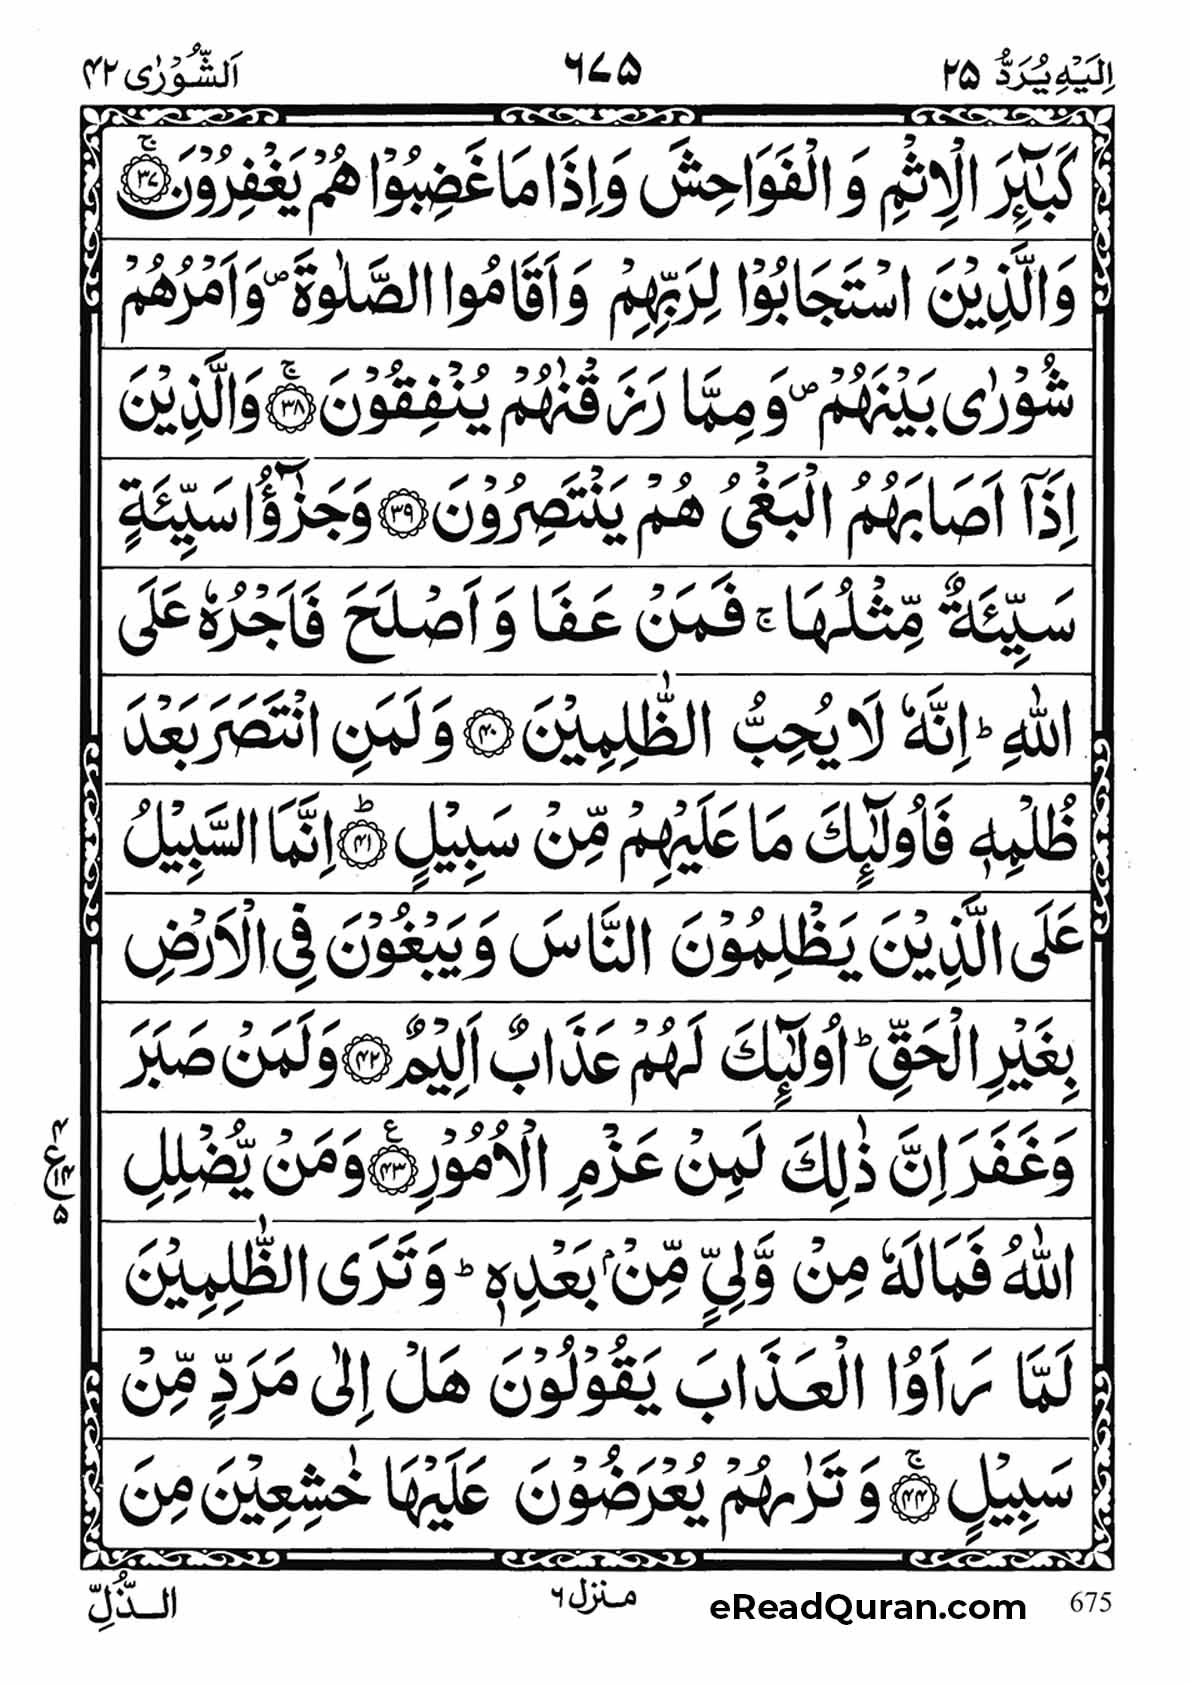 اِلَيْهِ يُرَدُّ ۲۵
٦٧٥
اَلشُّوْرٰى ۴۲
كَبٰٓئِرَ الْاِثْمِ وَ الْفَوَاحِشَ وَاِذَا مَا غَضِبُوْا هُمْ يَغْفِرُوْنَ ۚ‏ ﴿۳۷﴾
وَالَّذِيْنَ اسْتَجَابُوْا لِرَبِّهِمْ وَاَقَامُوا الصَّلٰوةَ ۖ وَاَمْرُهُمْ
شُوْرٰى بَيْنَهُمْ ۖ وَمِمَّا رَزَقْنٰهُمْ يُنْفِقُوْنَ ۚ ﴿۳۸﴾ وَالَّذِيْنَ
اِذَآ اَصَابَهُمُ الْبَغْىُ هُمْ يَنْتَصِرُوْنَ ﴿۳۹﴾ وَجَزٰٓؤُا سَيِّئَةٍ
سَيِّئَةٌ مِّثْلُهَا ۚ فَمَنْ عَفَا وَاَصْلَحَ فَاَجْرُهٗ عَلَى
اللّٰهِ ؕ اِنَّهٗ لَا يُحِبُّ الظّٰلِمِيْنَ ﴿۴۰﴾ وَلَمَنِ انْتَصَرَ بَعْدَ
ظُلْمِهٖ فَاُولٰٓئِكَ مَا عَلَيْهِمْ مِّنْ سَبِيْلٍ ؕ ﴿۴۱﴾ اِنَّمَا السَّبِيْلُ
عَلَى الَّذِيْنَ يَظْلِمُوْنَ النَّاسَ وَيَبْغُوْنَ فِى الْاَرْضِ
بِغَيْرِ الْحَقِّ ؕ اُولٰٓئِكَ لَهُمْ عَذَابٌ اَلِيْمٌ ﴿۴۲﴾ وَلَمَنْ صَبَرَ
وَغَفَرَ اِنَّ ذٰلِكَ لَمِنْ عَزْمِ الْاُمُوْرِ ﴿۴۳﴾ ع وَمَنْ يُّضْلِلِ
۴ ع ۱۴ ۵
اللّٰهُ فَمَا لَهٗ مِنْ وَّلِىٍّ مِّنْۢ بَعْدِهٖ ؕ وَتَرَى الظّٰلِمِيْنَ
لَمَّا رَاَوُا الْعَذَابَ يَقُوْلُوْنَ هَلْ اِلٰى مَرَدٍّ مِّنْ
سَبِيْلٍ ۚ ﴿۴۴﴾ وَتَرٰىهُمْ يُعْرَضُوْنَ عَلَيْهَا خٰشِعِيْنَ مِنَ
الذُّلِّ
منزل ٦
eReadQuran.com
675